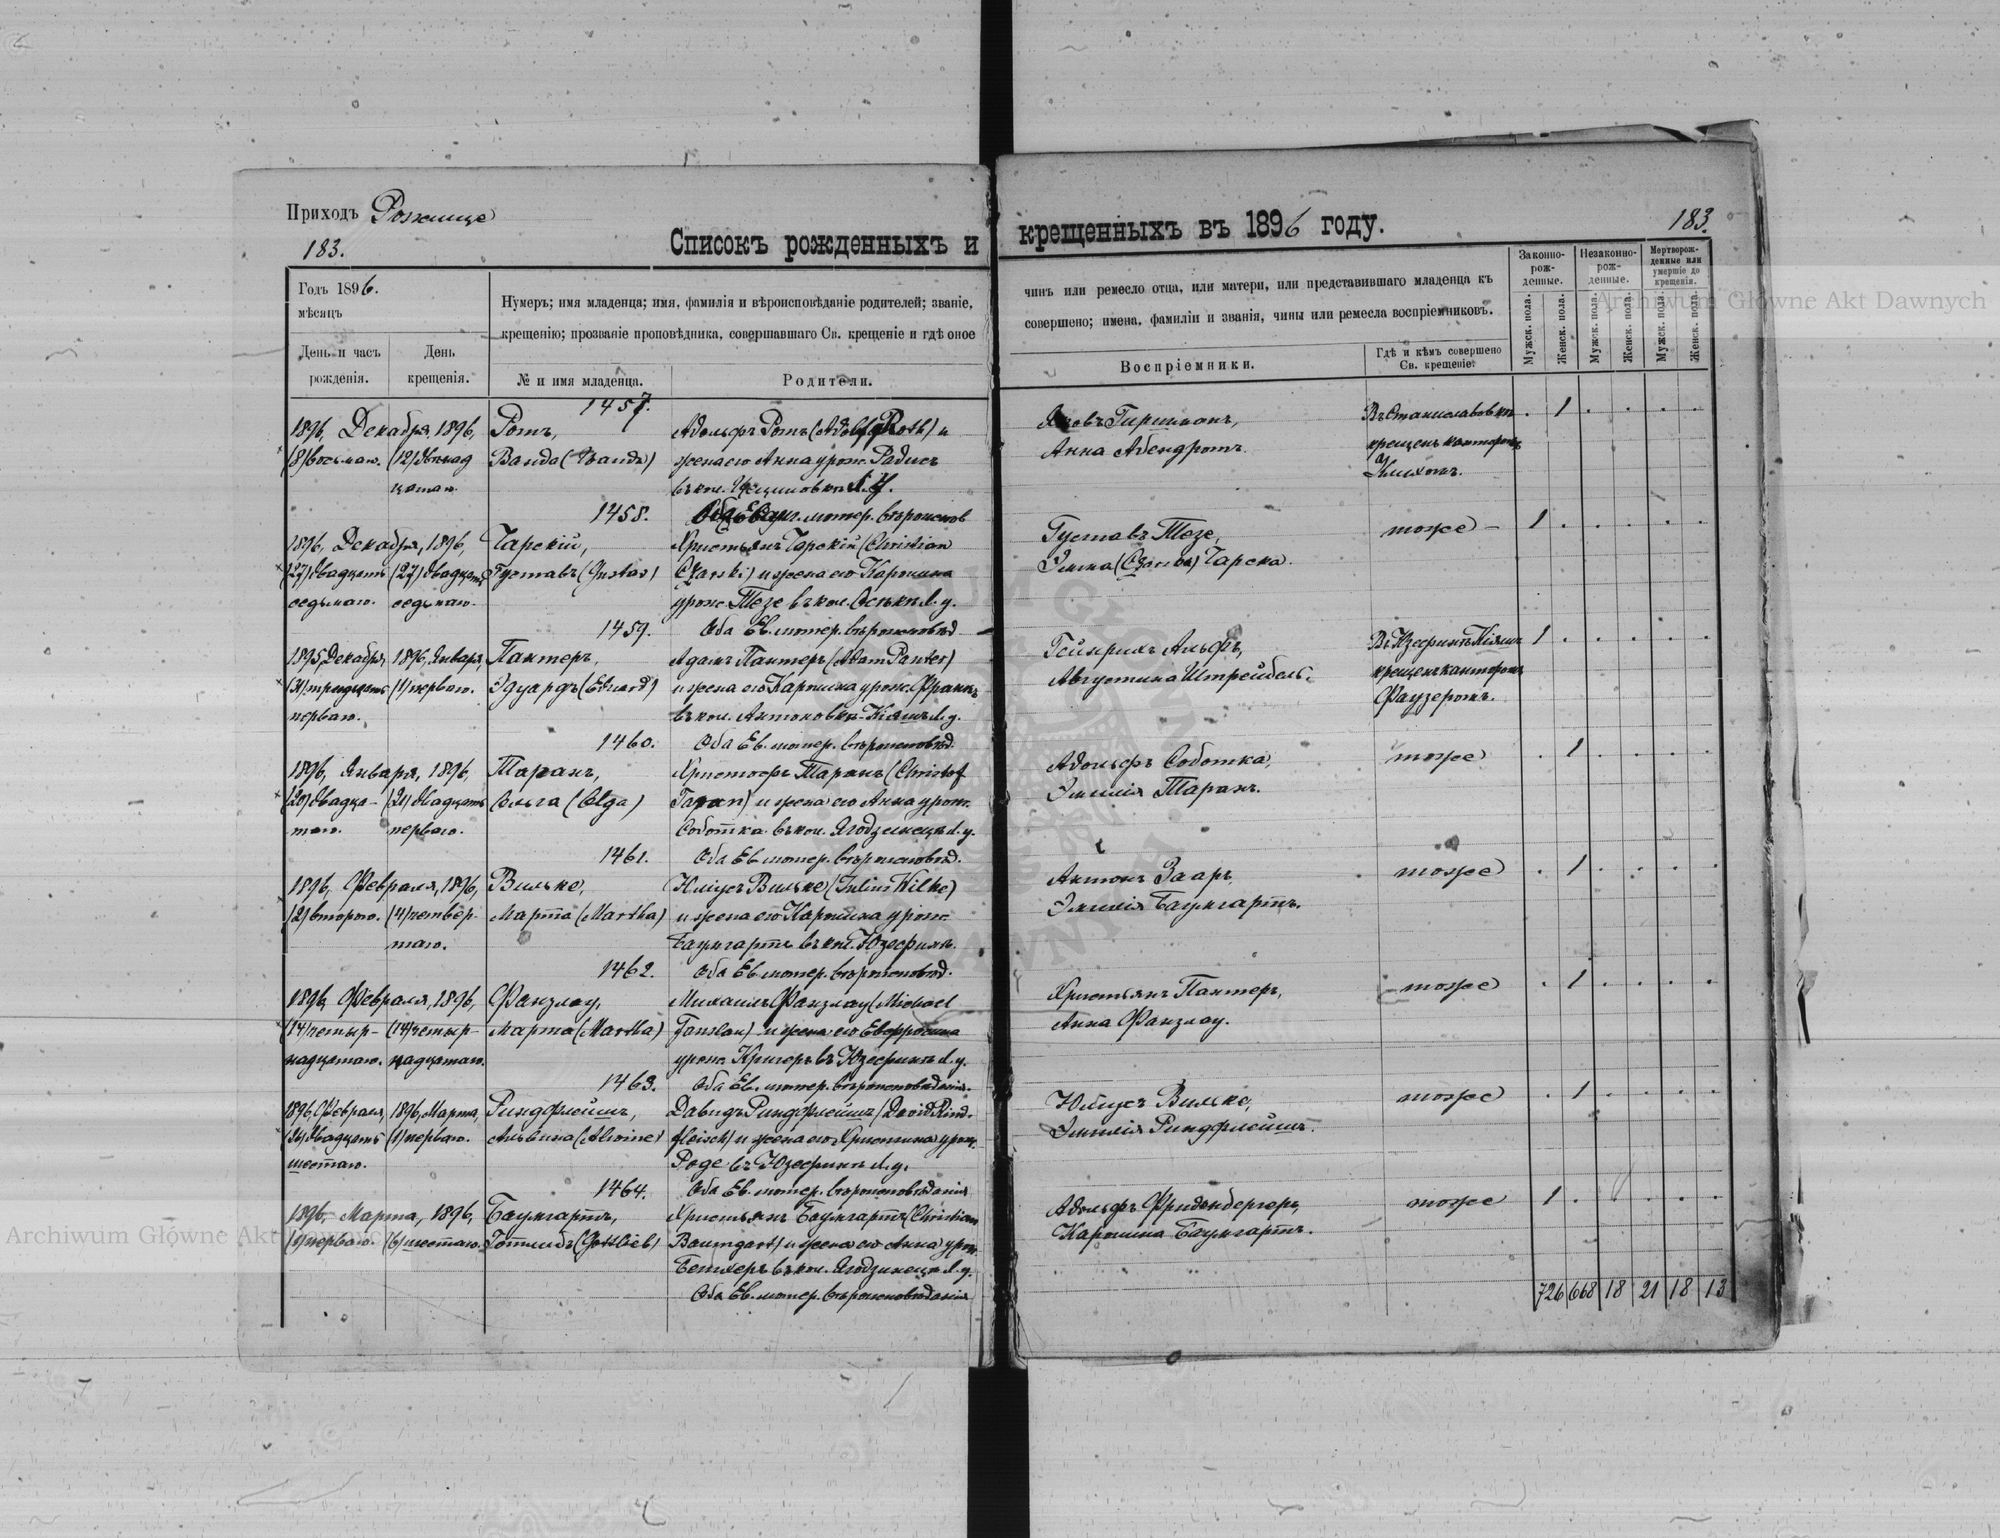 Приходъ Рожище
183.
Списокъ рожденныхъ и
крещенныхъ въ 1896 году.
183.
Годъ 1896.
мѣсяцъ
День и часъ рожденія.
День крещенія.
Нумеръ; имя младенца; имя, фамилія и вѣроисповѣданіе родителей; званіе,
крещенію; прозваніе проповѣдника, совершавшаго Св. крещеніе и гдѣ оное
№ и имя младенца.
Родители.
чинъ или ремесло отца, или матери, или представившаго младенца къ
совершено; имена, фамиліи и званія, чины или ремесла воспріемниковъ.
Воспріемники.
Гдѣ и кѣмъ совершено
Св. крещеніе.
Законно-
рож-
денные.
Незаконно-
рож-
денные.
Мертворож-
денные или
умершіе до
крещенія.
Мужск. пола.
Женск. пола.
Мужск. пола.
Женск. пола.
Мужск. пола.
Женск. пола.
1457.
1896, Декабря, 1896,
(8) восьмаго. (12) двѣнад
цатаго.
Ротъ,
Ванда (Wanda)
Адольфъ Ротъ (Adolf Roth) и
жена его Анна урож. Радис
въ кол.
Яковъ Гиршманъ,
Анна Абендротъ
Въ Станиславовкѣ
крещенъ канторомъ
1
1458.
Оба Еванг. лютер. вѣроиспов
1896, Декабря, 1896,
(27) двадцать (27) двадцать
седьмаго. седьмаго.
Чарскій,
Густавъ (Gustav)
Христьянъ Чарскій (Christian
Czarski) и жена его Каролина
урож. Тезе въ кол. Осъки л. у.
Густавъ Тезе,
Чарска.
тоже
1
1459.
Оба Ев. лютер. вѣроисповѣд
1895, Декабря, 1896, Января,
(31) тридцать (1) перваго.
перваго.
Пантеръ,
Эдуардъ (Eduard)
Адамъ Пантеръ (Adam Panter)
и жена его Каролина урож. Франкъ
въ кол. Антоновкѣ-Кіяшъ л. у.
Гейнрихъ Альфъ,
Августина Штрейбель.
Въ Юзефинѣ Кіяшъ
крещенъ канторомъ
Фаузеромъ.
1
1460.
Оба Ев. лютер. вѣроисповѣд.
1896, Января, 1896,
(20) двадца- (21) двадцать
таго. перваго.
Таранъ,
Ольга (Olga)
Христофъ Таранъ (Christof
Taran) и жена его Анна урож.
Соботка въ кол. л. у.
Адольфъ Соботка,
Эмилія Таранъ.
тоже
1
1461.
Оба Ев. лютер. вѣроисповѣд.
1896, Февраля, 1896,
(2) втораго. (4) четвер-
таго.
Вильке,
Марта (Martha)
Юліусъ Вильке (Julius Wilke)
и жена его Каролина урож.
Баумгартъ въ кол. Юзефинъ.
Антонъ Зааръ,
Эмилія Баумгартъ.
тоже
1
1462.
Оба Ев. лютер. вѣроисповѣд.
1896, Февраля, 1896,
(14) четыр- (14) четыр-
надцатаго. надцатаго.
Фанзлау,
Марта (Martha)
Михаилъ Фанзлау (Michael
Fanslau) и жена его Евфросина
урож. Кригеръ въ Юзефинѣ л. у.
Христьянъ Пантеръ,
Анна Фанзлау.
тоже
1
1463.
Оба Ев. лютер. вѣроисповѣданія.
1896, Февраля, 1896, Марта,
(26) двадцать (1) перваго.
шестаго.
Риндфлейшъ,
Альвина (Alwine)
Давидъ Риндфлейшъ (David Rind-
fleisch) и жена его Христина урож.
Роде въ Юзефинѣ л. у.
Юліусъ Вильке,
Эмилія Риндфлейшъ.
тоже
1
1464.
Оба Ев. лютер. вѣроисповѣданія
1896, Марта, 1896,
(1) перваго. (6) шестаго.
Баумгартъ,
Готлибъ (Gottlieb)
Христьянъ Баумгартъ (Christian
Baumgart) и жена его Анна урож.
въ кол. л. у.
Оба Ев. лютер. вѣроисповѣданія
Адольфъ Фриденбергеръ,
Каролина Баумгартъ.
тоже
1
726 668 18 21 18 13
Archiwum Główne Akt Dawnych
Archiwum Główne Akt Dawnych